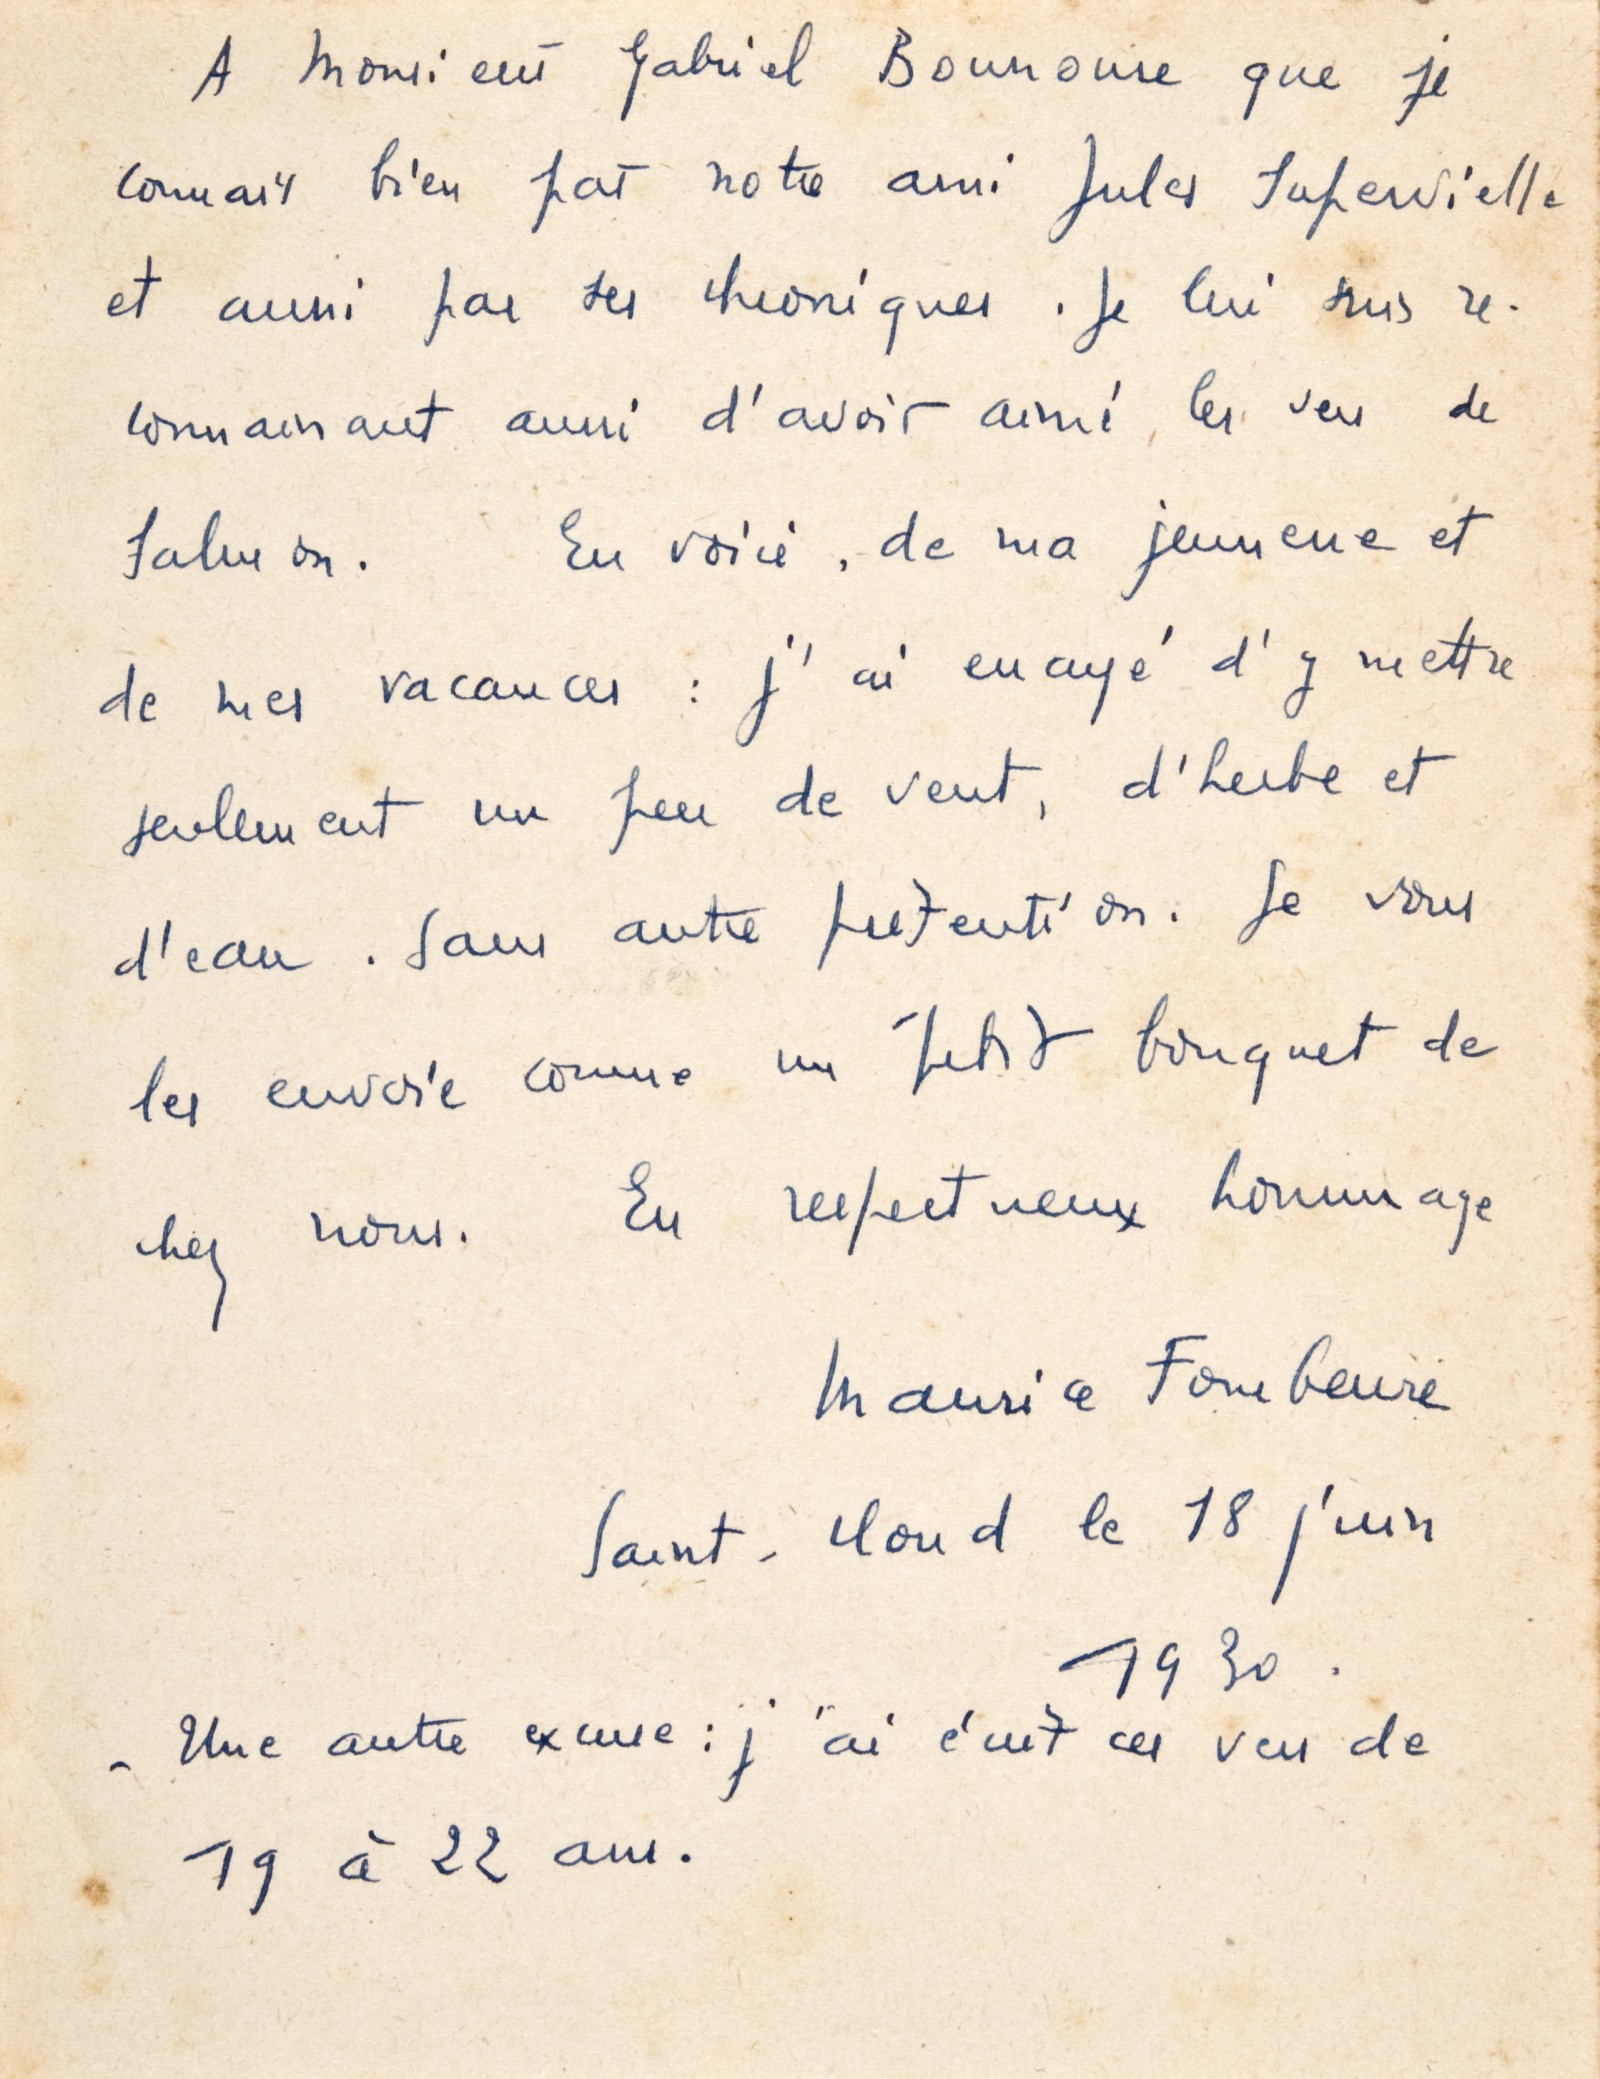 A Monsieur Gabriel Bounoure que je
connais bien par notre ami Jules Supervielle
et aussi par ses chroniques. Je lui suis re-
connaissant aussi d'avoir aimé les vers de
Salmon. En voici, de ma jeunesse et
de mes vacances : j'ai essayé d'y mettre
seulement un peu de vent, d'herbe et
d'eau. Sans autre prétention. Je vous
les envoie comme un petit bouquet de
chez nous. En respectueux hommage
Maurice Fombeure
Saint-Cloud le 18 juin
1930.
- Une autre excuse : j'ai écrit ces vers de
19 à 22 ans.